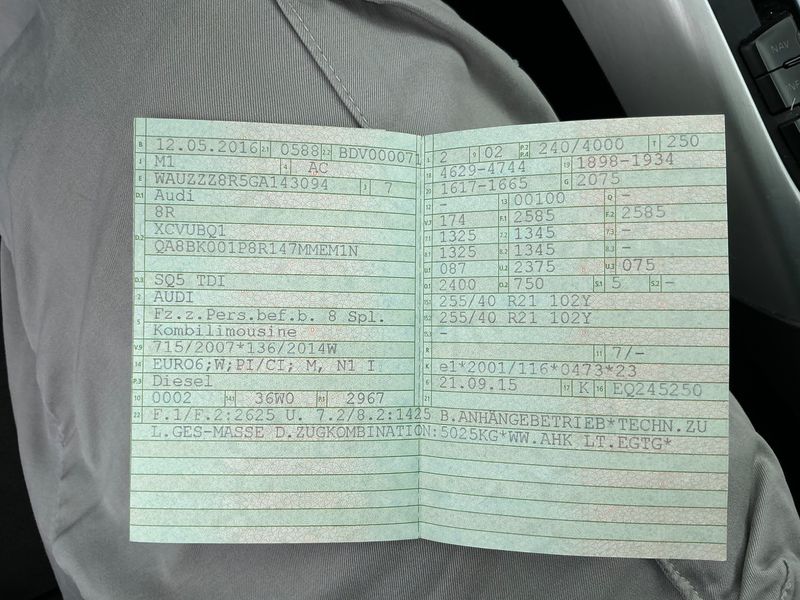 B 12.05.2016 2.1 0588 2.2 BDV000071
J M1 4 AC
E WAUZZZ8R5GA143094 3 7
D.1 Audi
8R
D.2 XCVUBQ1
QA8BK001P8R147MMEM1N
D.3 SQ5 TDI
2 AUDI
5 Fz.z.Pers.bef.b. 8 Spl.
Kombilimousine
V.9 715/2007*136/2014W
14 EURO6;W;PI/CI; M, N1 I
P.3 Diesel
10 0002 14.1 36W0 P.1 2967
L 2 9 02 P.2 P.4 240/4000 T 250
18 4629-4744 19 1898-1934
20 1617-1665 G 2075
12 - 13 00100 Q -
V.7 174 F.1 2585 F.2 2585
7.1 1325 7.2 1345 7.3 -
8.1 1325 8.2 1345 8.3 -
U.1 087 U.2 2375 U.3 075
O.1 2400 O.2 750 S.1 5 S.2 -
15.1 255/40 R21 102Y
15.2 255/40 R21 102Y
15.3 -
R 11 7/-
K e1*2001/116*0473*23
6 21.09.15 17 K 16 EQ245250
21
22 F.1/F.2:2625 U. 7.2/8.2:1425 B.ANHÄNGEBETRIEB*TECHN.ZU
L.GES-MASSE D.ZUGKOMBINATION:5025KG*WW.AHK LT.EGTG*
NAV